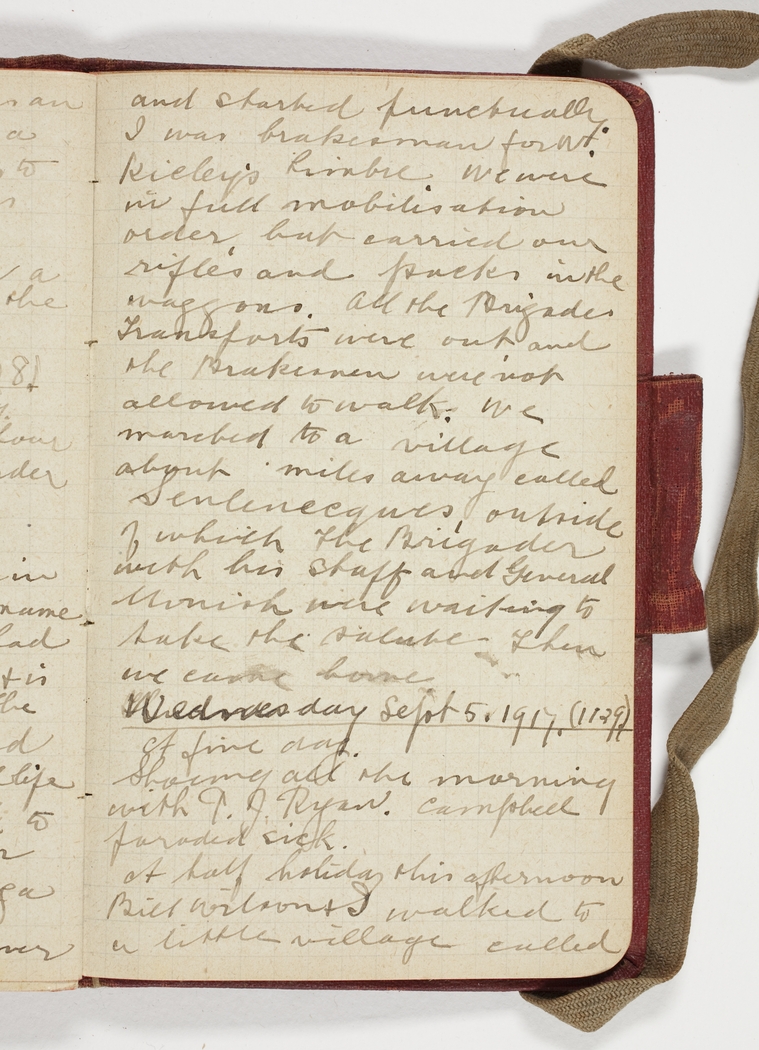 and started punctually
I was brakesman for Wt.
Kieley's limbre. We were
in full mobilisation
order, but carried our
rifles and packs in the
waggons. All the Brigades
Transports were out and
the Brakesmen were not
allowed to walk. We
marched to a village
about miles away called
Senlinecques, outside
of which the Brigader
with his Staff and General
Monish were waiting to
take the salute. Then
we came home
Wednesday Sept 5. 1917. (1129)
A fine day.
Shoeing all the morning
with P. J. Ryan. Campbell
paraded sick.
A half holiday this afternoon
Bill Wilson & I walked to
a little village called
an
a
to
a
the
8)
our
der
in
name
had
is
the
d
life
to
ga
ver